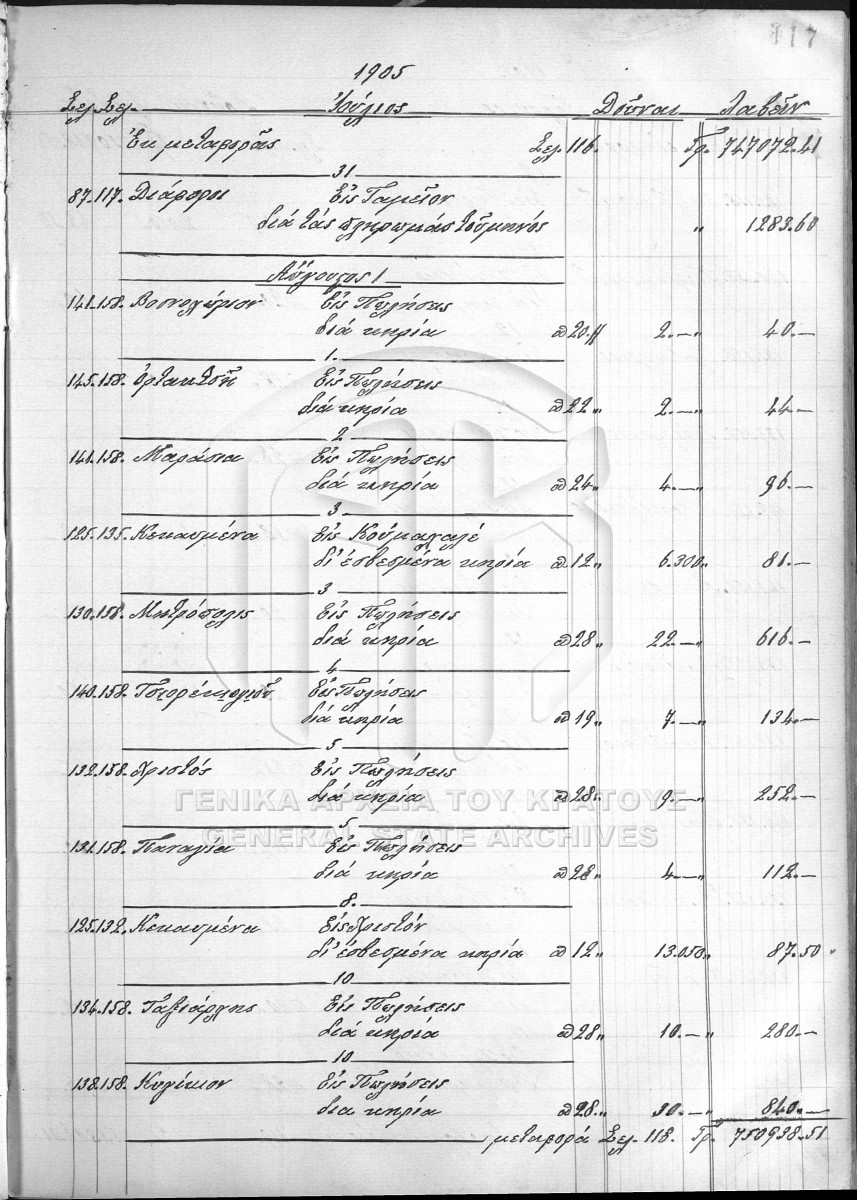 117
1905
Σελ. Σελ. Ἰούλιος Δοῦναι Λαβεῖν
Ἐκ μεταφορᾶς Σελ. 116. Γρ. 747072.41
31
87.117. Διάφοροι Εἰς Ταμεῖον
διὰ τὰς πληρωμὰς τοῦ μηνός " 1283.60
Αὔγουστος 1
141.158. Βοσνοχώριον Εἰς Πωλήσεις
διὰ κηρία 20 2.— " 40.—
1.
145.158. Ὀρτακτσῆ Εἰς Πωλήσεις
διὰ κηρία 22 " 2.— " 44.—
2
141.158. Μαράσια Εἰς Πωλήσεις
διὰ κηρία 24 " 4.— " 96.—
3
125.135. Κεκαυμένα Εἰς Κούμκαλέ
δι' ἐσβεσμένα κηρία 12 " 6.300 " 81.—
3
130.158. Μητρόπολις Εἰς Πωλήσεις
διὰ κηρία 28 " 22.— " 616.—
4
140.158. Εἰς Πωλήσεις
διὰ κηρία 19 " 7.— " 134.—
5
132.158. Χριστός Εἰς Πωλήσεις
διὰ κηρία 28 " 9.— " 252.—
5
ΓΕΝΙΚΑ ΑΡΧΕΙΑ ΤΟΥ ΚΡΑΤΟΥΣ
GENERAL STATE ARCHIVES
131.158. Παναγία Εἰς Πωλήσεις
διὰ κηρία 28 " 4.— " 112.—
8.
125.132. Κεκαυμένα Εἰς Χριστόν
δι' ἐσβεσμένα κηρία 12 " 13.050 " 87.50
10
134.158. Ταξιάρχης Εἰς Πωλήσεις
διὰ κηρία 28 " 10.— " 280.—
10
138.158. Κυγίκιον Εἰς Πωλήσεις
δια κηρία 28 " 30.— " 840.—
μεταφορά Σελ. 118. Γρ. 750938.51